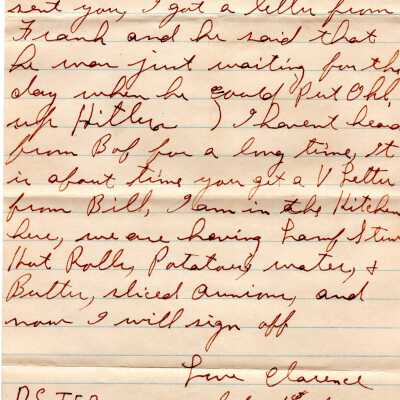 sent you, I got a letter from
Frank and he said that
he was just waiting for the
day when he could Put Ohl
up Hitler ) I havent head
from Bob for a long time, It
is about time you got a V Letter
from Bill, I am in the Kitchen
here, we are having Stew
Hot Rolls, Potatoes water, &
Butter, sliced ounions, and
now I will sign off
Love Clarence